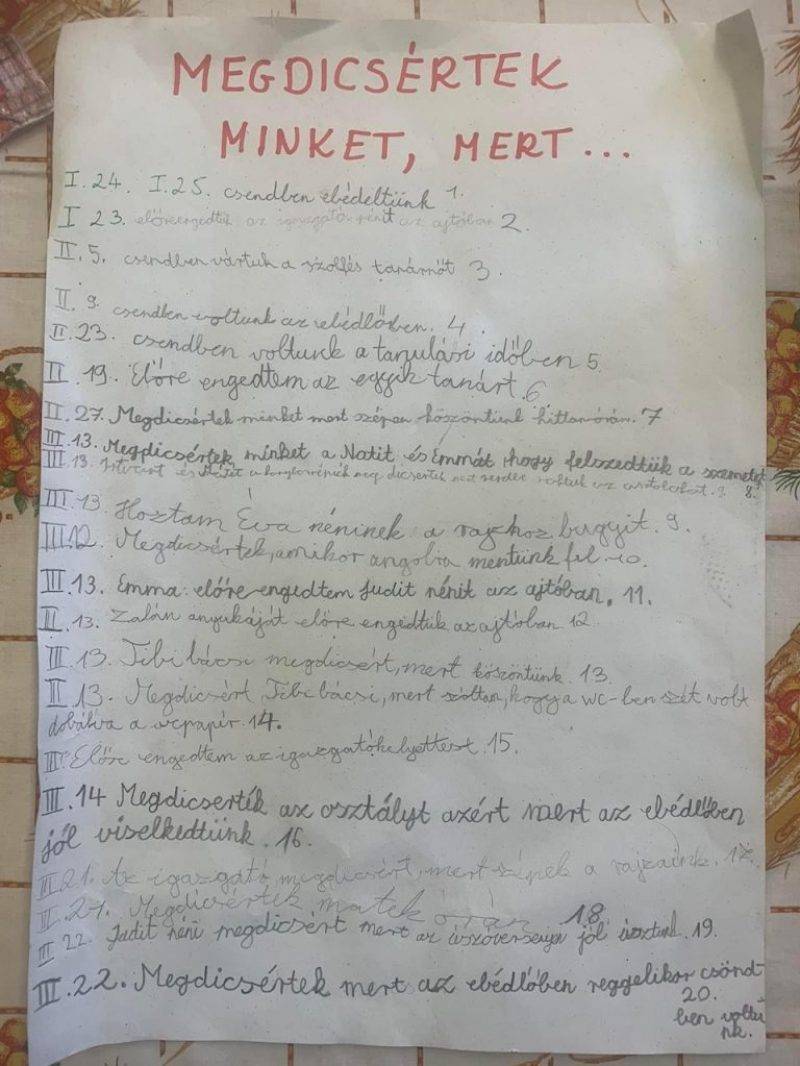 MEGDICSÉRTEK
MINKET, MERT...
I.24. I.25. csendben ebédeltünk 1.
I 23. előreengedtük az igazgató nénit az ajtóban 2.
II.5. csendben vártuk a szolfés tanárnőt 3.
II.9. csendben voltunk az ebédlőben. 4.
II.23. csendben voltunk a tanulási időben 5.
II 19. Előre engedtem az egyik tanárt. 6
II.27. Megdicsértek minket mert szépen köszöntünk hittanórán. 7
III.13. Megdicsértek minket a Natit és Emmát hogy felszedtük a szemetet
III.13. Istvánt és Mátét meg dicsérték mert rendet 8.
III.13 Hoztam Éva néninek a rajzhoz bugyit. 9.
III.12. Megdicsértek, amikor angolra mentünk fel. 10.
III.13. Emma: előre engedtem Judit nénit az ajtóban. 11.
II.13. Zalán anyukáját előre engedtük az ajtóban 12
III.13. Tibi bácsi megdicsért, mert köszöntünk. 13.
II 13. Megdicsért Tibi bácsi, mert szóltam, hogy a wc-ben szét volt
dobálva a wcpapír. 14.
III. Előre engedtem az igazgatóhelyettest. 15.
III.14 Megdicsertík az osztályt azért mert az ebédlőben
jól viselkedtünk. 16.
II.21. Az igazgató megdicsért, mert szépek a rajzaink. 17.
II.21. Megdicsértek matek órán 18.
III 22. Judit néni megdicsért mert az úszóversenyen jól úsztunk. 19.
III.22. Megdicsértek mert az ebédlőben reggelikor csönd
20.
ben voltu
nk.